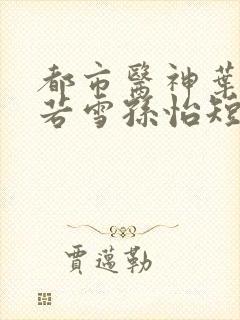 都市醫神葉
若雪孫怡短
賈邁勒